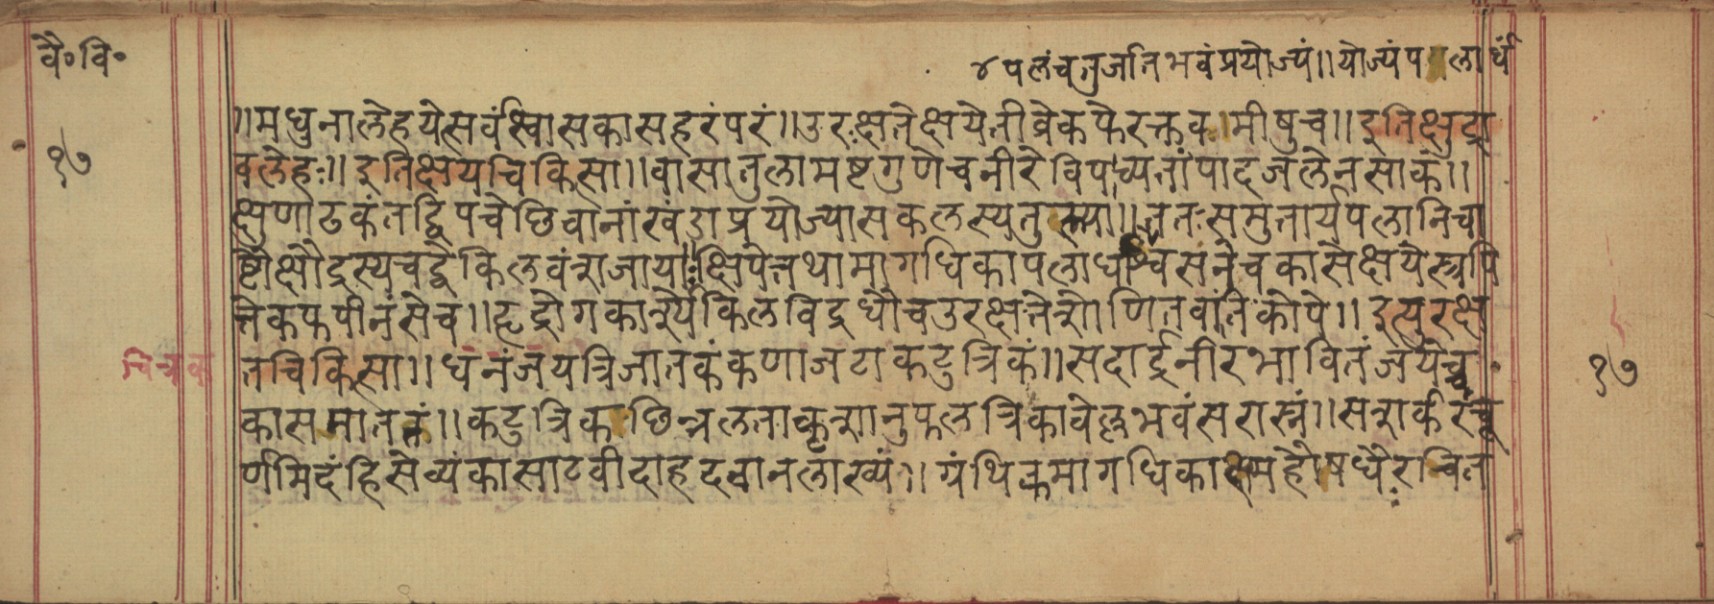 वै॰ वि॰
४ पलं चतुर्जातिभवं प्रयोज्यं॥ योज्यं प पलार्धं
॥मधुनालेहयेत्सर्वं श्वासकासहरं परं॥ उरःक्षते क्षये तीव्रे कफे रक्तव मीषु च॥ इति क्षुद्रा
वलेहः॥ इति क्षयचिकित्सा॥ वासातुलामष्टगुणे च नीरे विपाच्यतां पादजलेन साकं॥
क्षुणाढकं तद्विपचेछिवानां खंडा प्रयोज्या सकलस्य तुल्या॥ ततः समुतार्य पलानि चा
ष्टौ क्षौद्रस्य च द्वे किल वंशजायाः॥ क्षिपेत्तथा मागधिकापलार्धं श्वसने च कासे क्षयेस्रपि
त्ते कफपीनसे च॥ हृद्रोगकार्श्ये किल विद्रधौ च उरक्षते शोणितवांतिकोपे॥ इत्युरक्ष
तचिकित्सा॥ धनंजयत्रिजातकं कणाजटाकटुत्रिकं॥ सदार्द्रनीरभावितं जयेच्च
१७
चित्रक
१७
कासमातनं॥ कटुत्रिकछिन्नलताकृशानुफलत्रिकावेल्लभवं सरास्नं॥ सशर्करं चू
र्णमिदं हि सेव्यं कासाटवीदाहदवानलाख्यं॥ ग्रंथिकमागधिकाक्षमहौषधैरचित